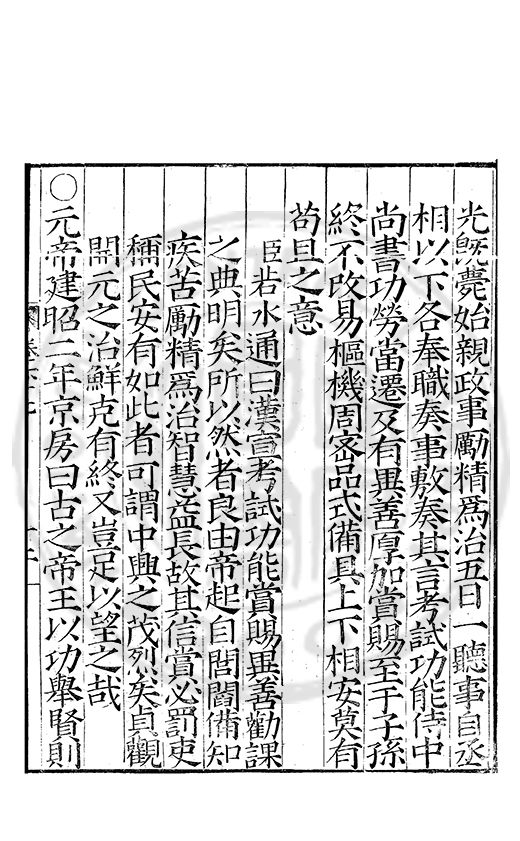 光旣薨始親政事勵精爲治五日一聽事自丞
相以下各奉職奏事敷奏其言考試功能侍中
尚書功勞當遷及有異善厚加賞賜至于子孫
終不改易樞機周密品式備具上下相安莫有
苟且之意
臣若水通曰漢宣考試功能賞賜異善勸課
之典明矣所以然者良由帝起自閭閻備知
疾苦勵精爲治智慧益長故其信賞必罰吏
稱民安有如此者可謂中興之茂烈矣貞觀
開元之治鮮克有終又豈足以望之哉
〇元帝建昭二年京房曰古之帝王以功舉賢則